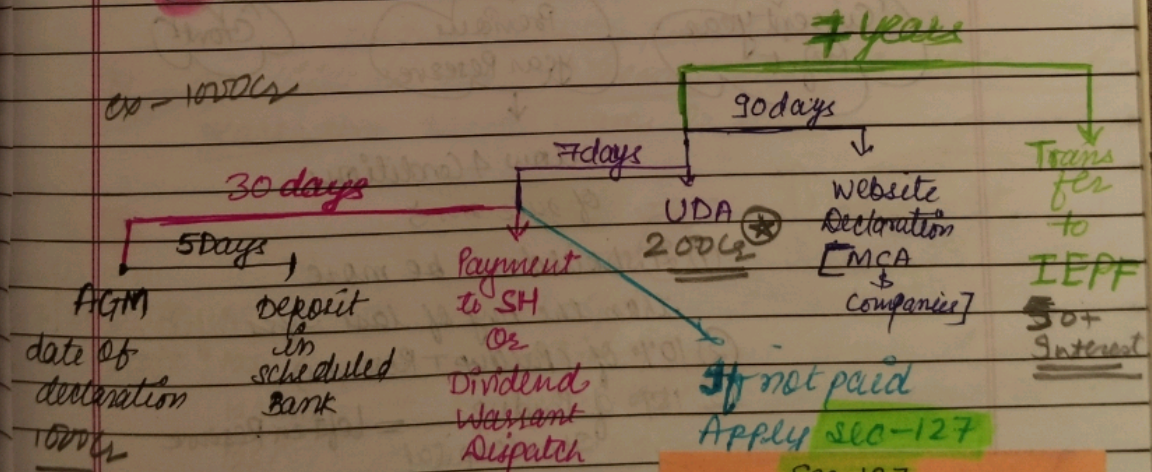 7 years
ex - 1000Cr
90 days
7days
30 days
5 Days
AGM
date of
declaration
1000Cr
Deposit
in
scheduled
Bank
Payment
to SH
Or
Dividend
Warrant
Dispatch
UDA
200Cr
Website
Declaration
[MCA
&
Companies]
Trans
fer
to
IEPF
50+
Interest
If not paid
Apply Sec-127